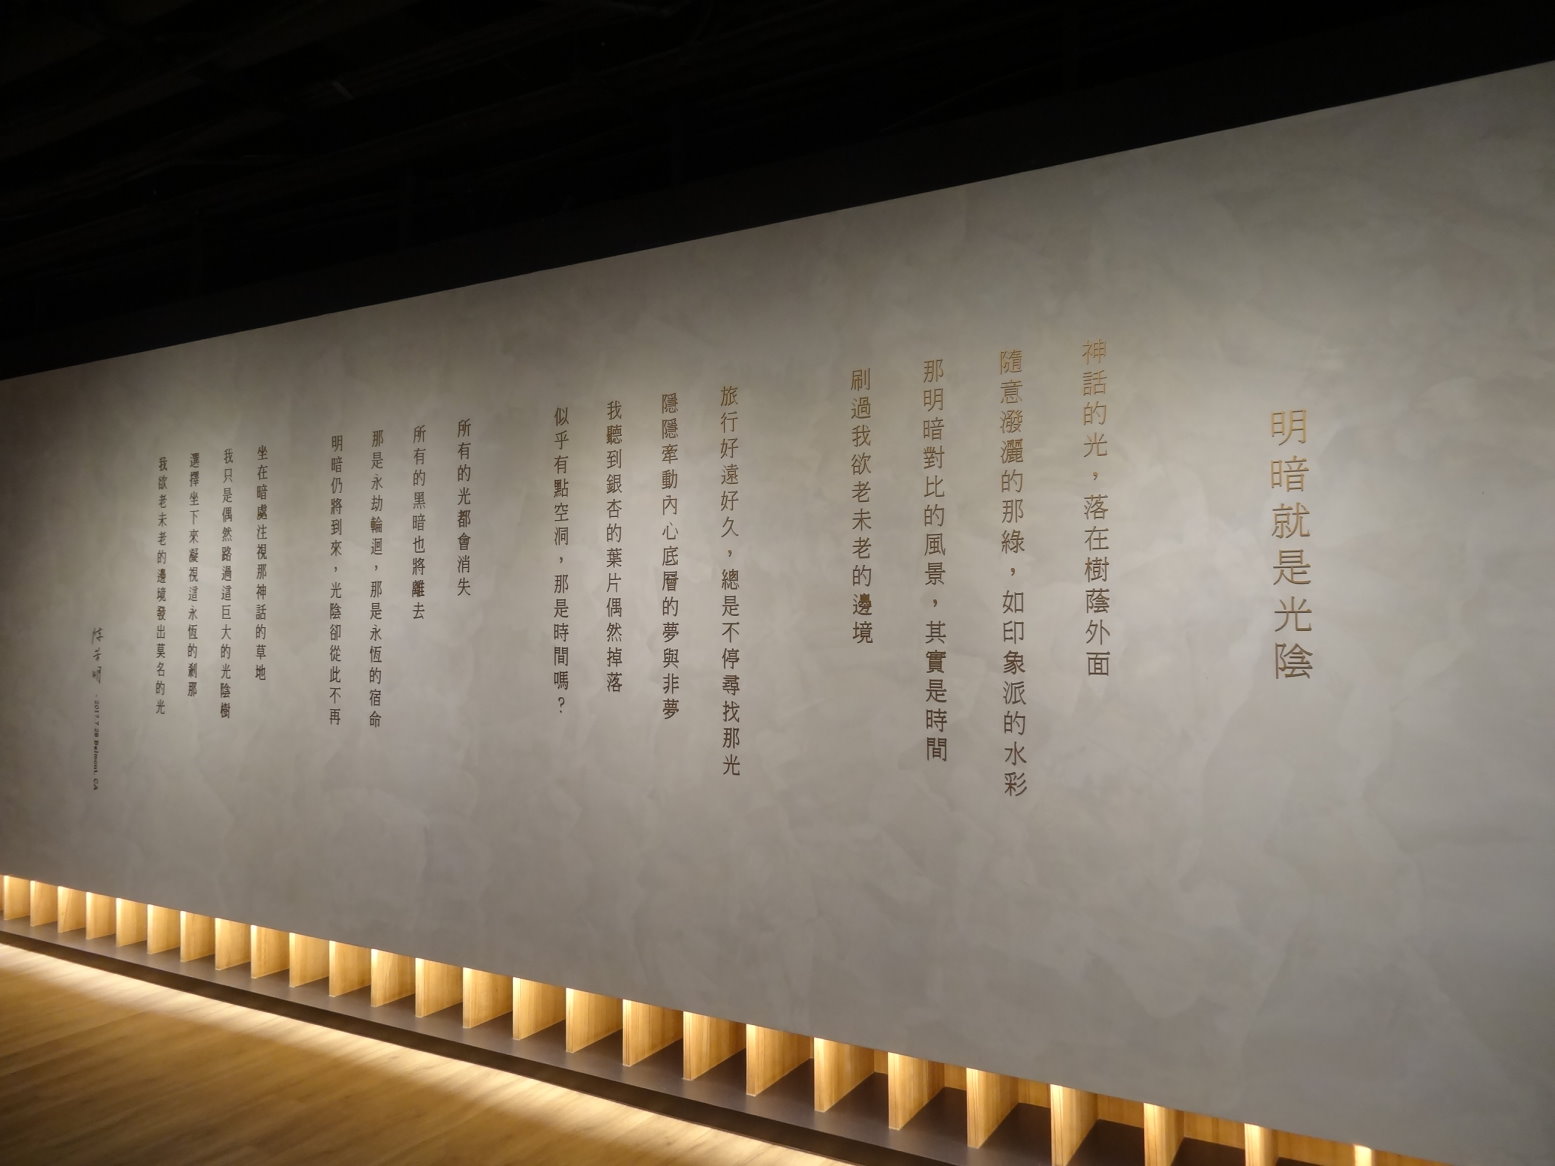 明暗就是光陰
神話的光，落在樹蔭外面
隨意潑灑的那綠，如印象派的水彩
那明暗對比的風景，其實是時間
刷過我欲老未老的邊境
旅行好遠好久，總是不停尋找那光
隱隱牽動內心底層的夢與非夢
我聽到銀杏的葉片偶然掉落
似乎有點空洞，那是時間嗎？
所有的光都會消失
所有的黑暗也將離去
那是永劫輪迴，那是永恆的宿命
明暗仍將到來，光陰卻從此不再
坐在暗處注視那神話的草地
我只是偶然路過這巨大的光陰樹
選擇坐下來凝視這永恆的剎那
我欲老未老的邊境發出莫名的光
Belmont, CA